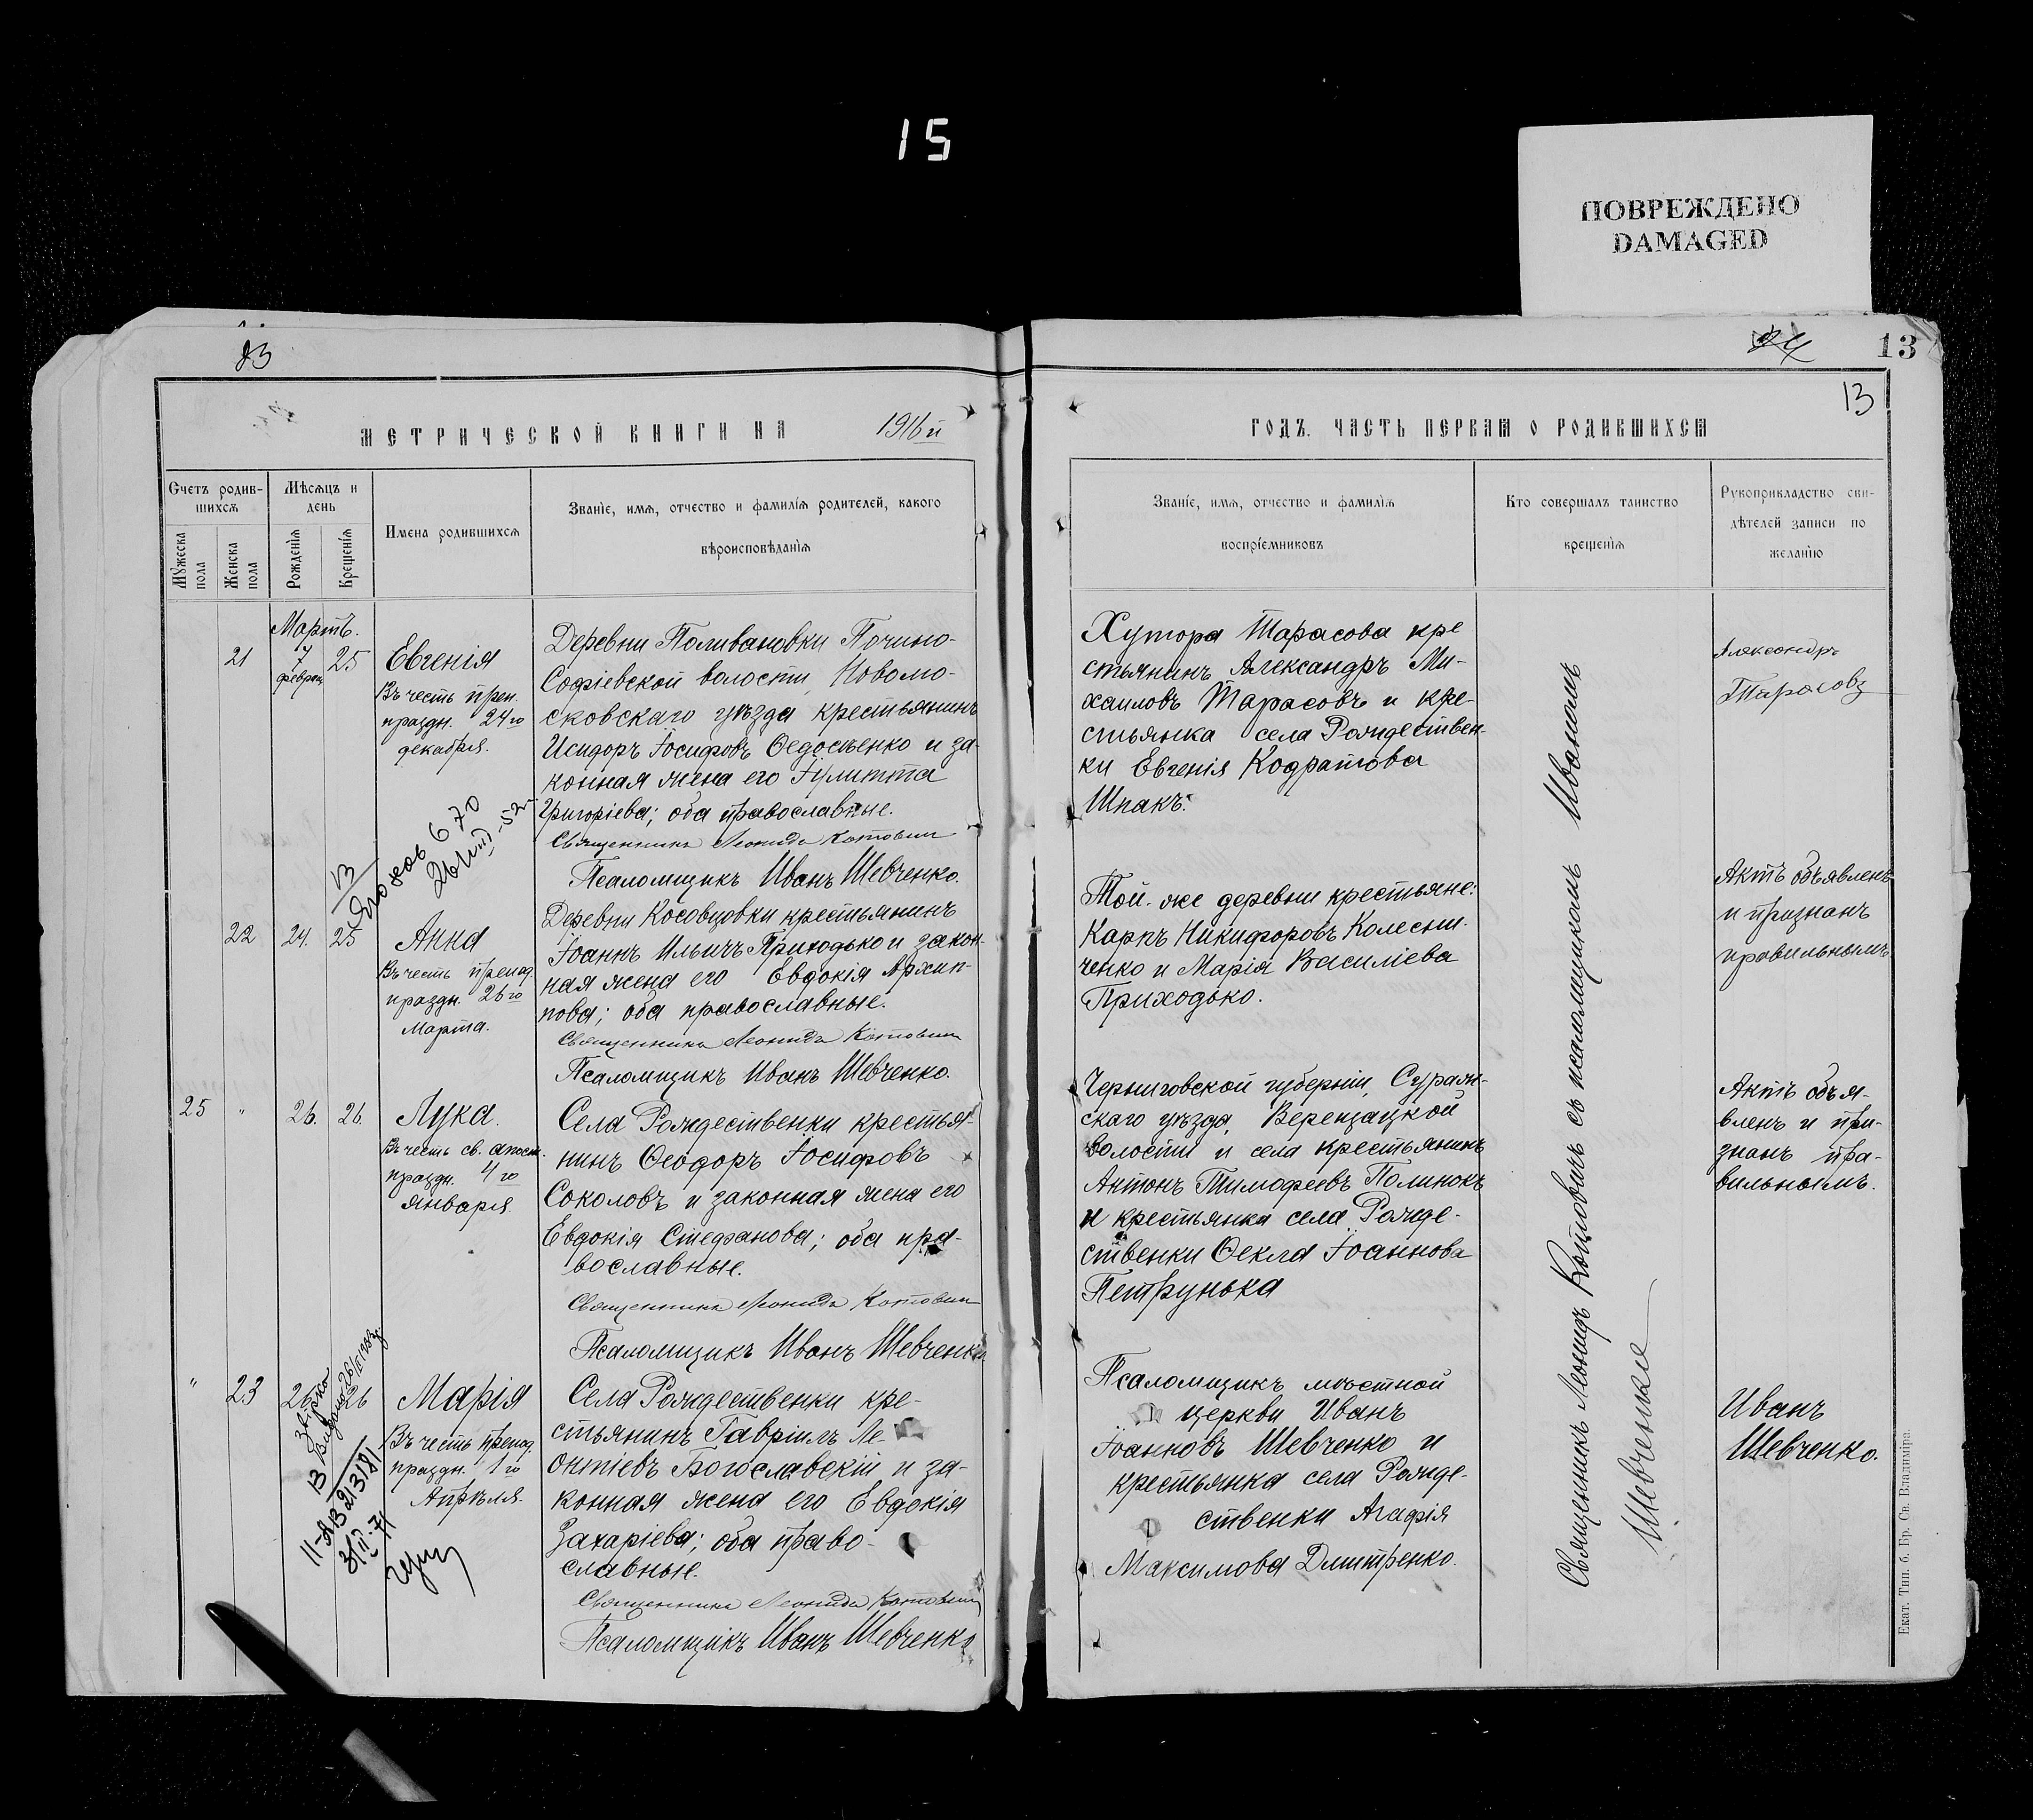 15
ПОВРЕЖДЕНО
DAMAGED
23
13
13
МЕТРИЧЕСКОЙ КНИГИ НА 1916й
ГОДЪ. ЧАСТЬ ПЕРВАЯ О РОДИВШИХСЯ
Счетъ родив-
шихся
Мужеска
пола
Женска
пола
Мѣсяцъ и
день
Рожденія
Крещенія
Имена родившихся
Званіе, имя, отчество и фамилія родителей, какого
вѣроисповѣданія
Званіе, имя, отчество и фамилія
воспріемниковъ
Кто совершалъ таинство
крещенія
Рукоприкладство сви-
дѣтелей записи по
желанію
Мартъ.
21
7
25
Евгенія
Въ честь преп.
праздн. 24го
декабря.
Деревни Поливановки
Софіевской волости, Новомо-
сковскаго уѣзда крестьянинъ
Исидоръ Іосифовъ Ѳедосѣенко и за-
конная жена его Іулитта
Григоріева; оба православные.
Священникъ Леонидъ Котович
Псаломщикъ Иванъ Шевченко.
Хутора Тарасова кре
стьянинъ Александръ Ми-
хаиловъ Тарасовъ и кре-
стьянка села Рождествен-
ки Евгенія Кодратова
Шпакъ.
Александръ
Тарасовъ
22
24.
25
Анна
Въ честь препод.
праздн. 26го
Марта.
Деревни Косовцовки крестьянинъ
Іоаннъ Ильичъ Приходько и закон-
ная жена его Евдокія Архип-
пова; оба православные.
Священникъ Леонидъ Котович
Псаломщикъ Иванъ Шевченко.
Той-же деревни крестьяне:
Карпъ Никифоровъ Колесни-
ченко и Марія Василіева
Приходько.
Актъ объявленъ
и признанъ
правильнымъ
25
"
26.
26.
Лука.
Въ честь св. апост.
праздн. 4го
января
Села Рождественки крестья-
нинъ Ѳеодоръ Іосифовъ
Соколовъ и законная жена его
Евдокія Стефанова; оба пра-
вославные.
Священникъ Леонидъ Котович
Псаломщикъ Иванъ Шевченко
Черниговской губерніи, Сураж-
скаго уѣзда, Верещацкой
волости и села крестьянинъ
Антонъ Тимофеевъ Полинокъ
и крестьянка села Рожде-
ственки Ѳекла Іоаннова
Петрунька
Актъ объя-
вленъ и при-
знанъ пра-
вильнымъ.
"
23
26
26
Марія
Въ честь препод.
праздн. 1го
Апрѣля.
Села Рождественки кре-
стьянинъ Гавріилъ Ле-
онтіевъ Богославскій и за-
конная жена его Евдокія
Захаріева; оба право-
славные.
Священникъ Леонидъ Котович
Псаломщикъ Иванъ Шевченко
Псаломщикъ мѣстной
церкви Иванъ
Іоанновъ Шевченко и
крестьянка села Рожде-
ственки Агафія
Максимова Дмитренко.
Иванъ
Шевченко.
Священникъ Леонидъ Котовичъ съ псаломщикомъ Иваномъ
Шевченкие
Екат. Тип. б. Бр. Св. Владиміра.